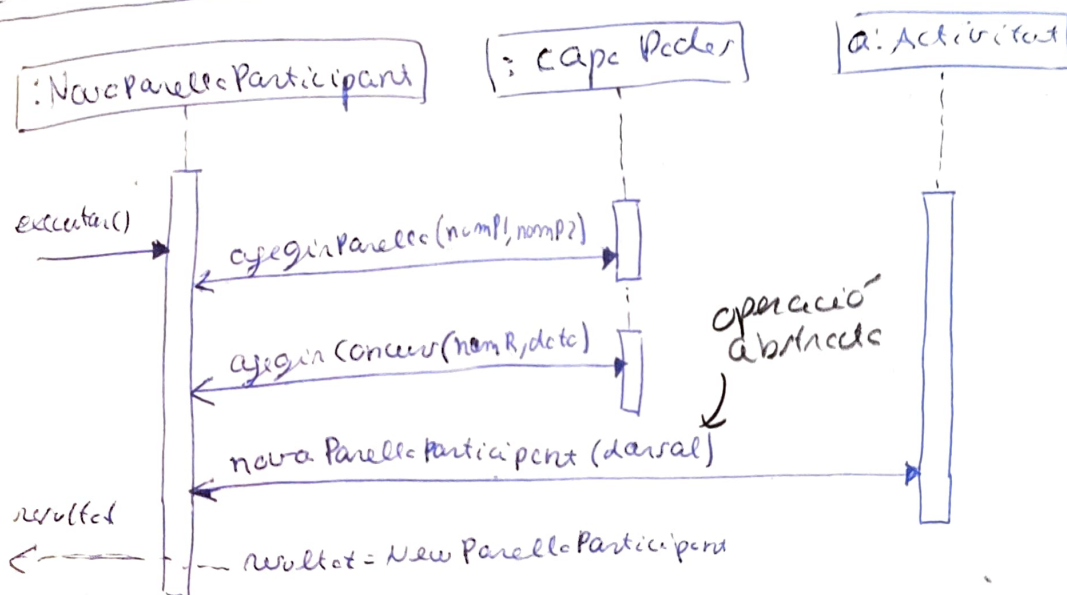 :NovaParellaParticipant
: Capa Dades
a: Activitat
executar()
afegirParella(nomP1,nomP2)
operació
abstracta
afegirConcurs(nomR,data)
nova ParellaParticipant (dorsal)
resultat
resultat = New ParellaParticipant